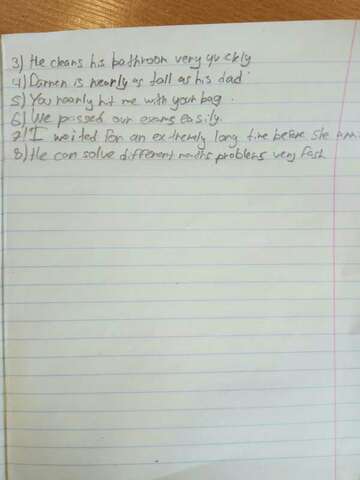 3) He cleans his bathroom very quickly
4) Darren is nearly as tall as his dad
5) You nearly hit me with your bag.
6) We passed our exams easily.
7) I waited for an extremely long time before she
8) He can solve different maths problems very fast